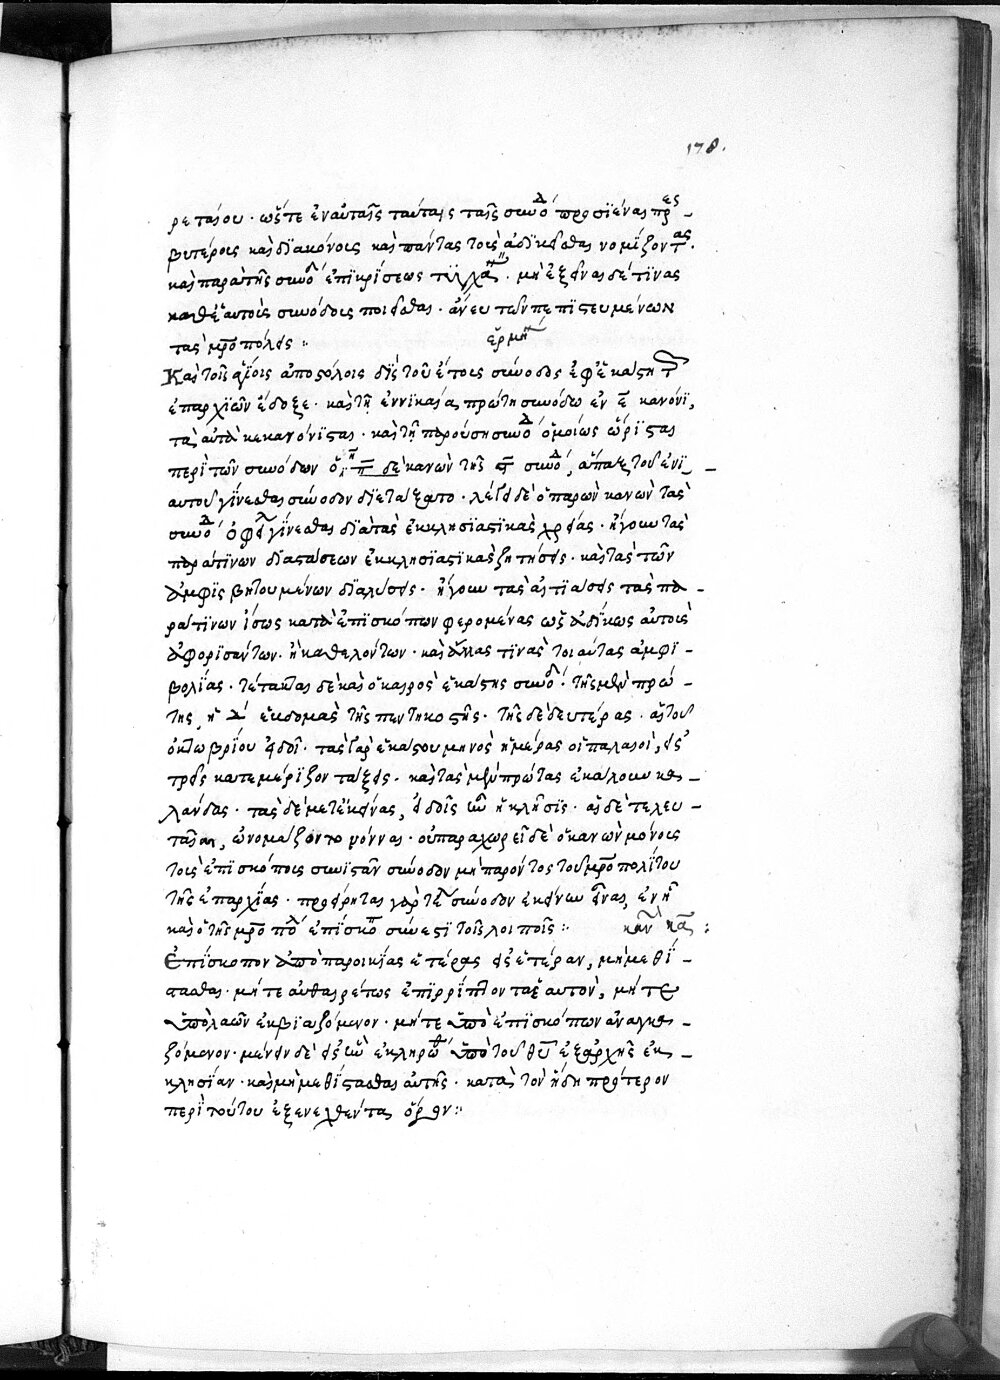 178.
ρεταίου· ὥστε ἐν αὐταῖς ταύταις ταῖς συνόδ προσϊέναι πρες-
βυτέροις καὶ διακόνοις καὶ πάντας τοὺς ἀδικεῖσθαι νομίζοντας.
καὶ παρὰ τῆς συνόδ ἐπικρίσεως τυγχά. μὴ ἐξεῖναι δέ τινας
καθ' ἑαυτοὺς συνόδους ποιεῖσθαι· ἄνευ τῶν πεπιστευμένων
τὰς μροπόλεις:
ἑρμη
Καὶ τοῖς ἁγίοις ἀποστόλοις δὶς τοῦ ἔτους σύνοδος ἐφ' ἑκάστη τ
ἐπαρχϊῶν ἔδοξε· καὶ τῇ ἐν νικαία πρώτη συνόδω ἐν ε κανόνι,
τὰ αὐτὰ κεκανόνισται· καὶ τῇ παρούση συνόδ ὁμοίως ὥρισται
περὶ τῶν συνόδων ὁ δὲ κανὼν τῆς ς συνόδ, ἅπαξ τοῦ ἐνι-
αυτοῦ γίνεσθαι σύνοδον διετάξατο· λέγει δὲ ὁ παρὼν κανὼν τὰς
συνόδ ὀφείλ γίνεσθαι διὰ τὰς ἐκκλησιαστικὰς χρείας· ἤγουν τὰς
παρά τινων διαστάσεων ἐκκλησιαστικὰς ζητήσεις· καὶ τὰς τῶν
ἀμφισβητουμένων διαλύσεις· ἤγουν τὰς αἰτιάσεις τὰς πα-
ρά τινων ἴσως κατὰ ἐπισκόπων φερομένας ὡς ἀδίκως αὐτοὺς
ἀφορισάντων· ἢ καθελόντων· καὶ ἄλλας τινὰς τοιαύτας ἀμφι-
βολίας· τέτακται δὲ καὶ ὁ καιρὸς ἑκάστης συνόδ· τῆς μὲν πρώ-
της, ἡ δ ἑβδομὰς τῆς πεντηκοστῆς· τῆς δὲ δευτέρας· αἱ τοῦ
ὀκτωβρίου εἰδοί· τὰς γὰρ ἑκάστου μηνὸς ἡμέρας οἱ παλαιοί, εἰς
τρεῖς κατεμέριζον τάξεις· καὶ τὰς μὲν πρώτας ἐκάλουν κα-
λάνδας· τὰς δὲ μετ' ἐκείνας, εἰδοῖς ἦν ἡ κλῆσις· αἱ δὲ τελευ-
ταῖαι, ὠνομάζοντο νόνναι· οὐ παραχωρεῖ δὲ ὁ κανὼν μόνοις
τοῖς ἐπισκόποις συνιστᾶν σύνοδον μὴ παρόντος τοῦ μροπολίτου
τῆς ἐπαρχίας· προσείρηται γὰρ τελ σύνοδον ἐκείνην εἶναι, ἐν ἧ
καὶ ὁ τῆς μροπόλ ἐπίσκοπ σύνεστι τοῖς λοιποῖς: κανὼν κα:
Ἐπίσκοπον ἀπὸ παροικίας ἑτέρας εἰς ἑτέραν, μὴ μεθί-
στασθαι· μήτε αὐθαιρέτως ἐπιρρίπτοντα ἑαυτὸν, μήτε
ὑπὸ λαῶν ἐκβιαζόμενον· μήτε ὑπὸ ἐπισκόπων ἀναγκα-
ζόμενον· μένειν δὲ εἰς ἣν ἐκληρώθ ὑπὸ τοῦ θυ ἐξαρχῆς ἐκ-
κλησίαν· καὶ μὴ μεθίστασθαι αὐτῆς· κατὰ τὸν ἤδη πρότερον
περὶ τούτου ἐξενεχθέντα ὅρον: